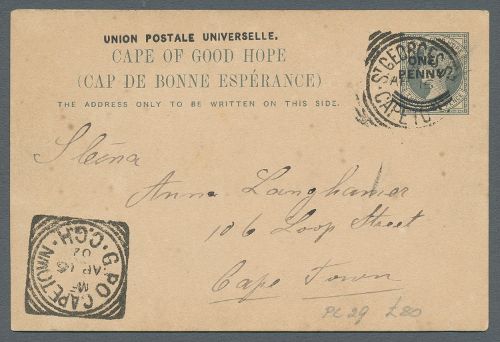 UNION POSTALE UNIVERSELLE.
CAPE OF GOOD HOPE
(CAP DE BONNE ESPÉRANCE)
THE ADDRESS ONLY TO BE WRITTEN ON THIS SIDE.
ONE
PENNY
ST GEORGES S
AP 15
CAPE TO
Anna Langhamer
106 Loop Street
Cape Town
G.P.O CAPETOWN. C.G.H.
AP 15
02
PC 29 £80